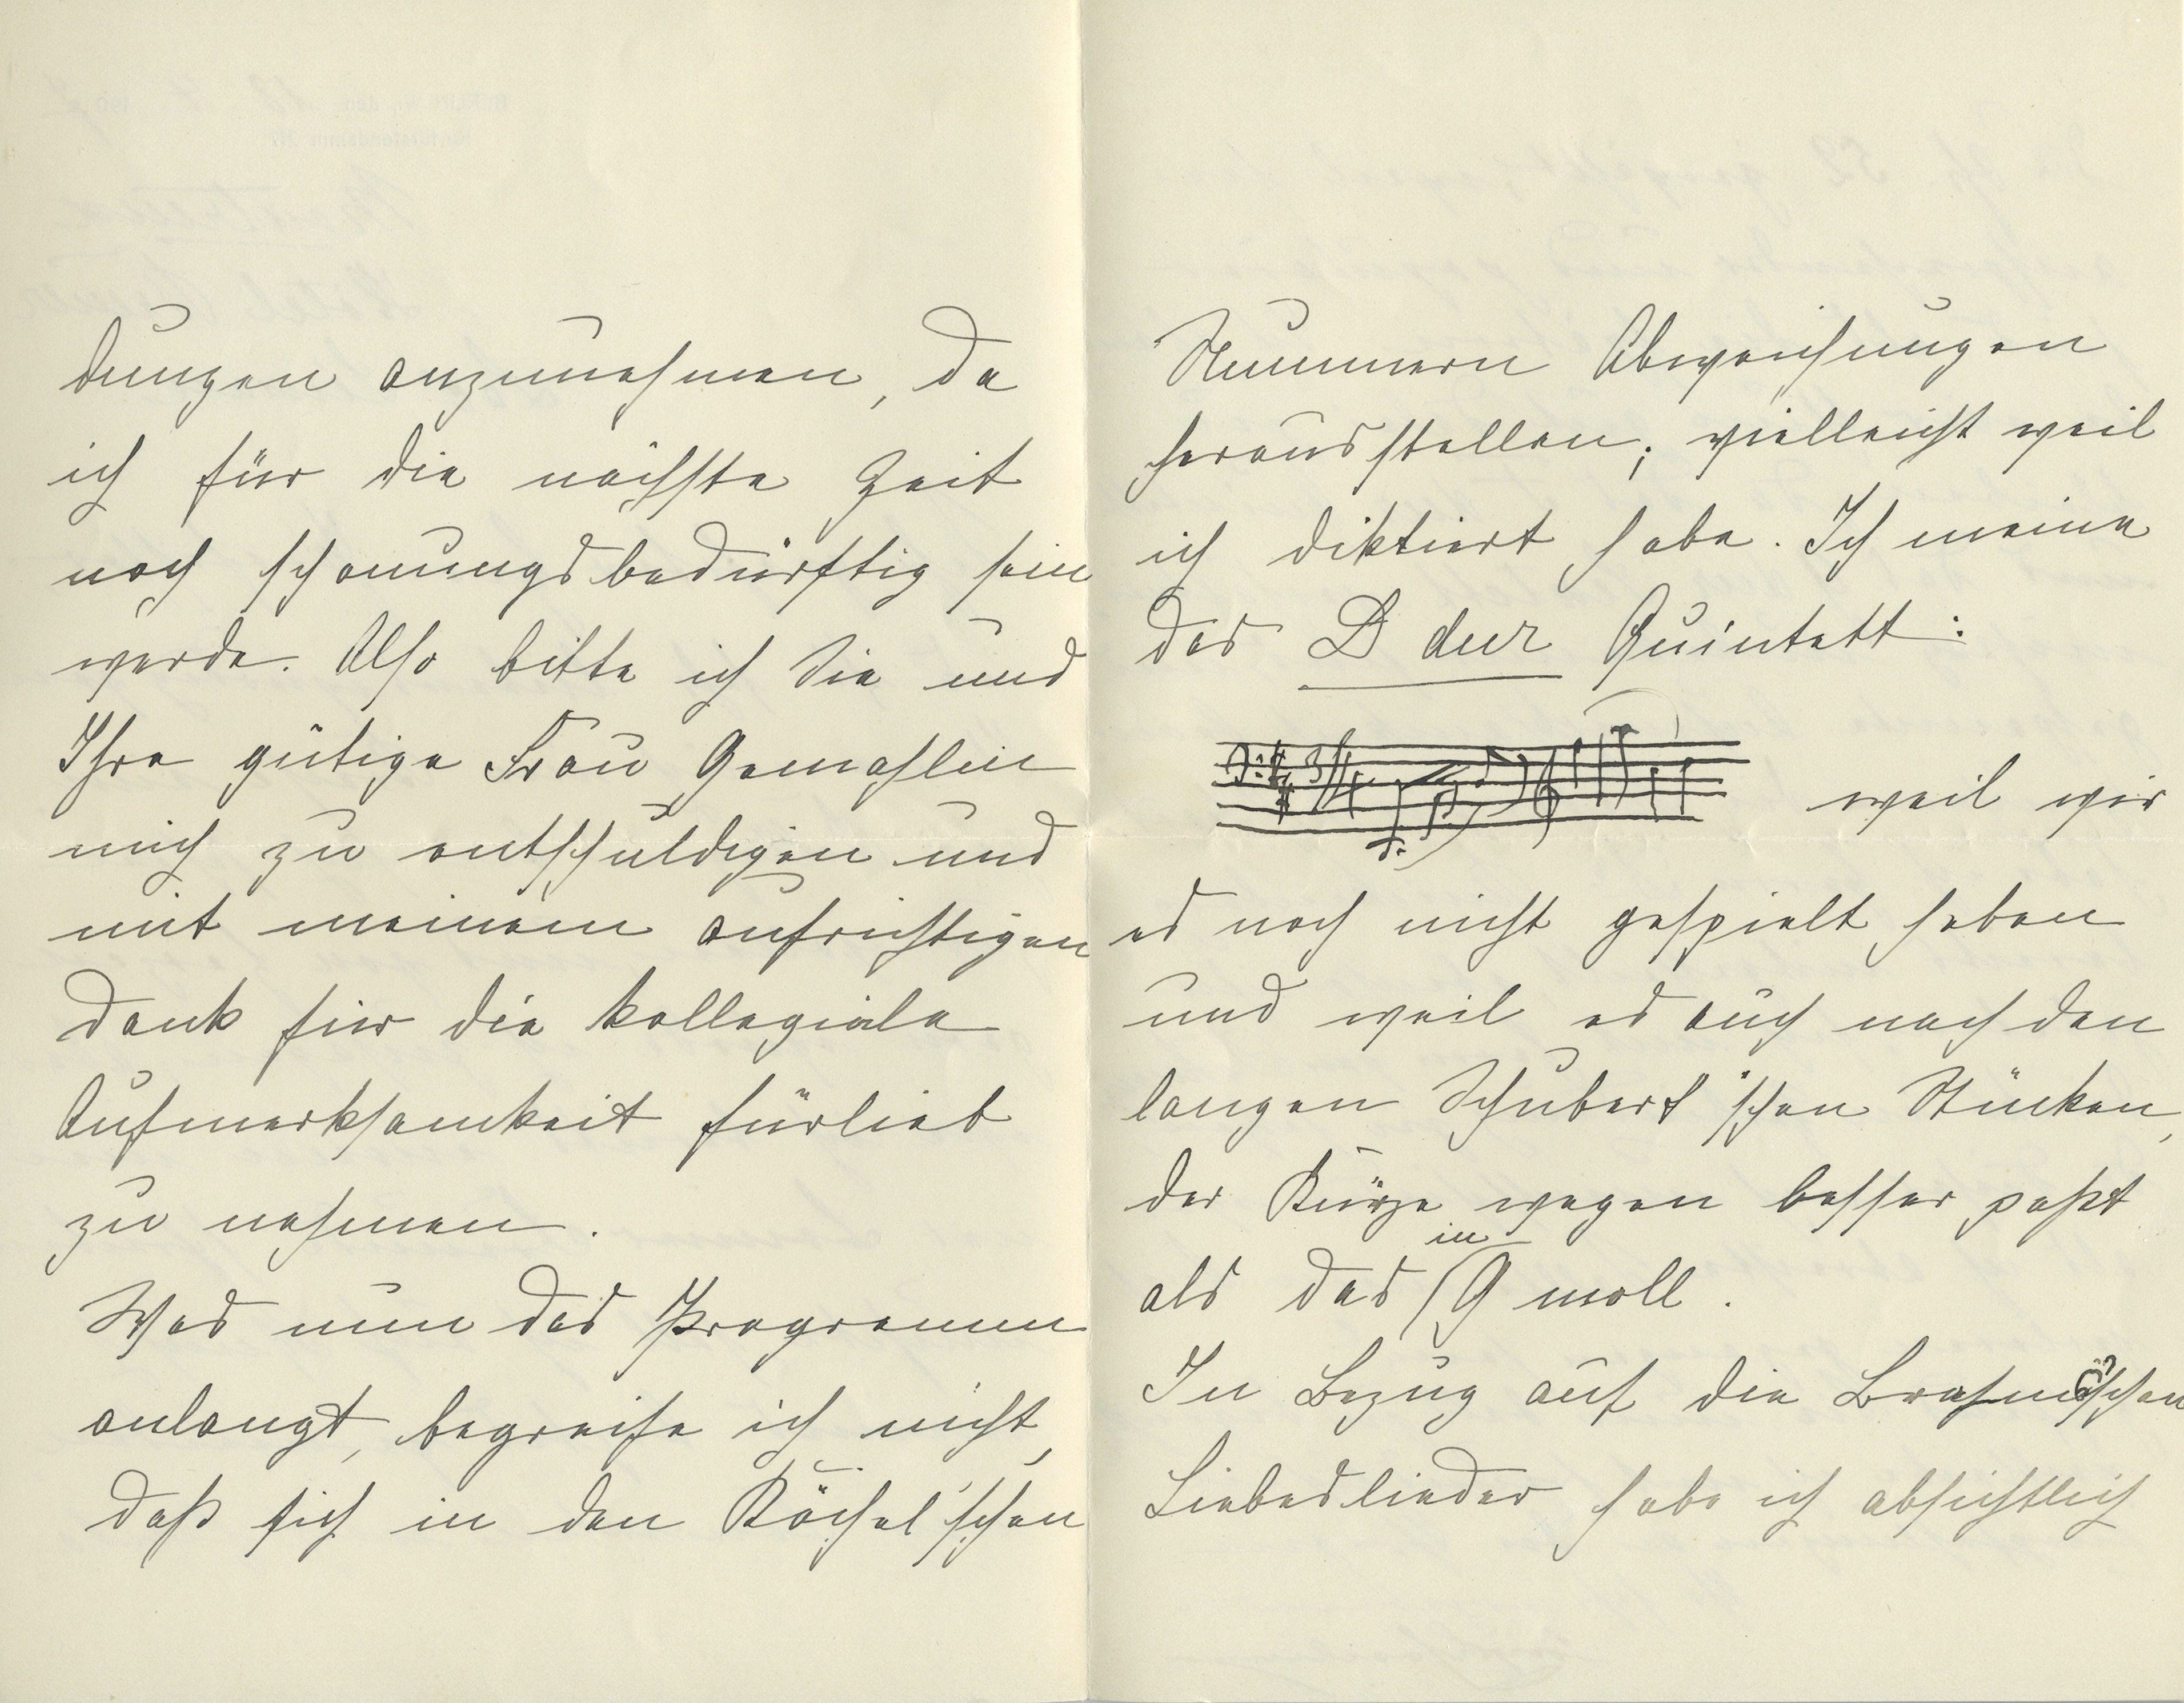 dungen anzunehmen, da
ich für die nächste Zeit
noch schonungsbedürftig sein
werde. Also bitte ich Sie und
Ihre gütige Frau Gemahlin
mich zu entschuldigen und
mit meinem aufrichtigen
Dank für die kollegiale
Aufmerksamkeit fürlieb
zu nehmen.
Was nun das Programm
anlangt, begreife ich nicht,
daß sich in den Köchel'schen
Nummern Abweichungen
herausstellen; vielleicht weil
ich diktiert habe. Ich meine
das D dur Quintett:
weil wir
es noch nicht gespielt haben
und weil es auch nach den
langen Schubert'schen Stücken,
der Kürze wegen besser paßt
als das in G moll.
In Bezug auf die Brahms'schen
Liebeslieder habe ich absichtlich